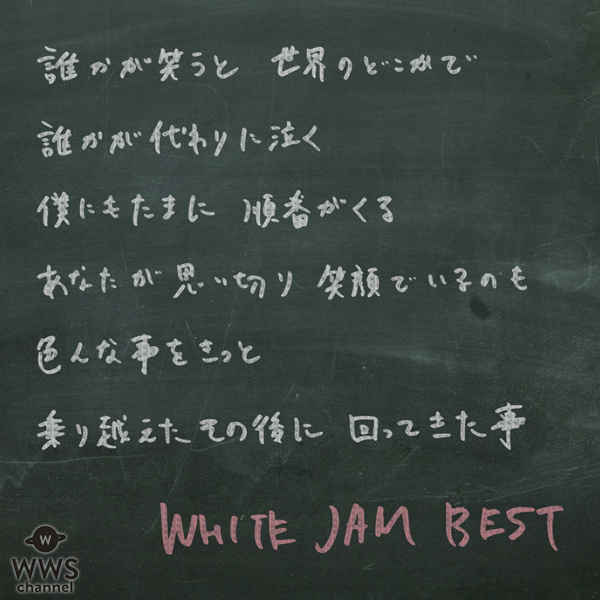 誰かが笑うと 世界のどこかで
誰かが代わりに泣く
僕にもたまに 順番がくる
あなたが思い切り 笑顔でいるのも
色んな事をきっと
乗り越えたその後に 回ってきた事
WHITE JAM BEST
W
WWS
channel